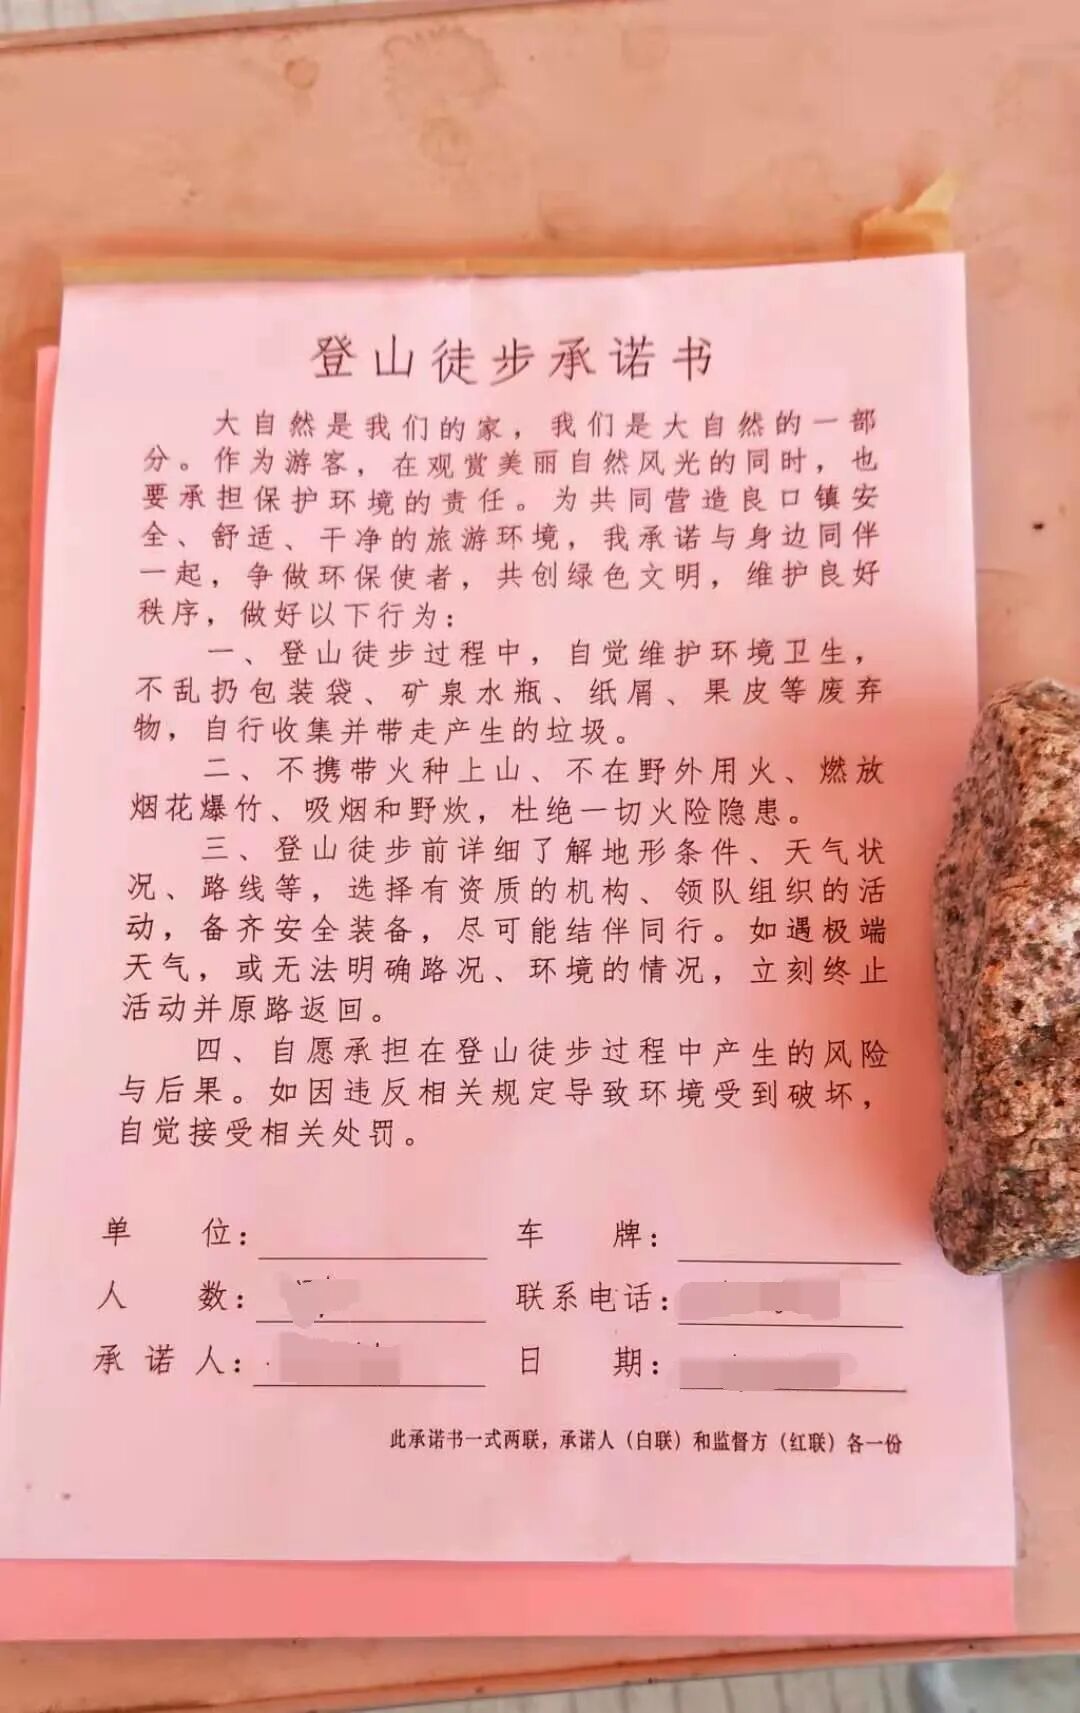 登山徒步承诺书
大自然是我们的家，我们是大自然的一部
分。作为游客，在观赏美丽自然风光的同时，也
要承担保护环境的责任。为共同营造良口镇安
全、舒适、干净的旅游环境，我承诺与身边同伴
一起，争做环保使者，共创绿色文明，维护良好
秩序，做好以下行为：
一、登山徒步过程中，自觉维护环境卫生，
不乱扔包装袋、矿泉水瓶、纸屑、果皮等废弃
物，自行收集并带走产生的垃圾。
二、不携带火种上山、不在野外用火、燃放
烟花爆竹、吸烟和野炊，杜绝一切火险隐患。
三、登山徒步前详细了解地形条件、天气状
况、路线等，选择有资质的机构、领队组织的活
动，备齐安全装备，尽可能结伴同行。如遇极端
天气，或无法明确路况、环境的情况，立刻终止
活动并原路返回。
四、自愿承担在登山徒步过程中产生的风险
与后果。如因违反相关规定导致环境受到破坏，
自觉接受相关处罚。
单 位： 车 牌：
人 数： 联系电话：
承诺人： 日 期：
此承诺书一式两联，承诺人（白联）和监督方（红联）各一份